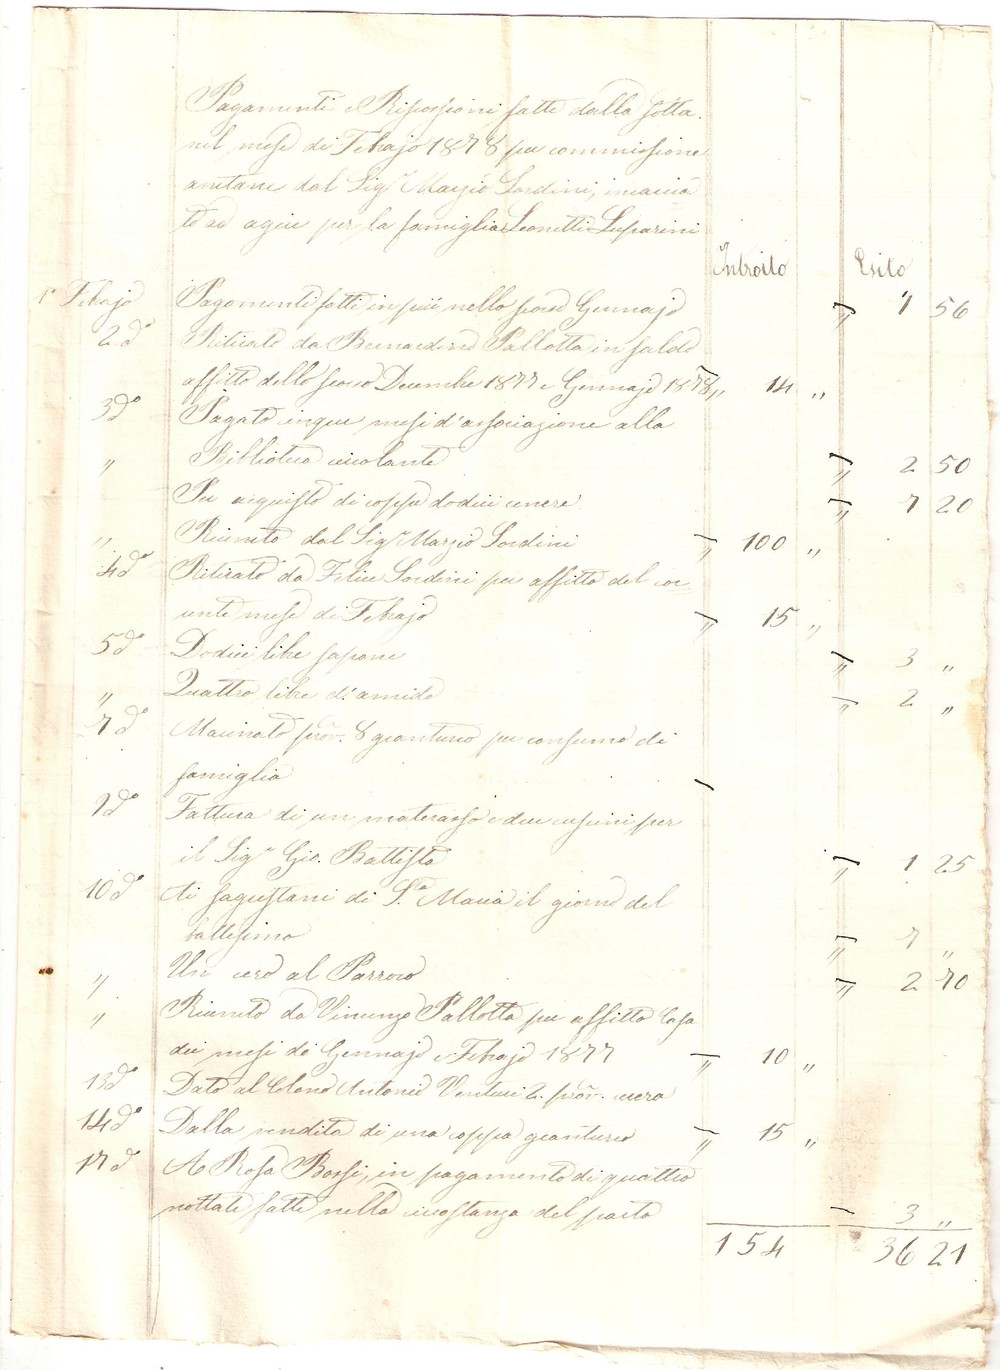 Pagamenti e Riscossioni fatte dalla sotta.
nel mese di Febajo 1878 per commissione
avutane dal Sigr Marzio Sordini, incarica
to ad agire per la famiglia Leonetti Luparini
Introito Esito
1° Febajo Pagamenti fatti in più nello scorso Gennajo " 1 56
2 do Ritirato da Bernardino Pallotta in saldo
affitto dello scorso Decembre 1877 e Gennajo 1878 " 14 "
3 do Pagato cinque mesi d'associazione alla
" Biblioteca circolante " 2 50
Per acquisto di coppe dodici cenere " 7 20
" Ricevuto dal Sigr Marzio Sordini " 100 "
4 do Ritirato da Felice Sordini per affitto del cor-
rente mese di Febajo " 15 "
5 do Dodici libre sapone " 3 "
" Quattro libre d'amido " 2 "
7 do Macinato prov. 8 granturco per consumo di
famiglia
9 do Fattura di un materasso e due cuscini per
il Sigr Gio. Battista " 1 25
10 do Ai sagrestani di S.a Maria il giorno del
battesimo " 7 "
" Un cero al Parroco " 2 70
" Ricevuto da Vincenzo Pallotta per affitto Casa
dei mesi di Gennajo e Febajo 1877 " 10 "
13 do Dato al Colono Antonio Venturi 2. prov.
14 do Dalla vendita di una coppa granturco " 15 "
17 do A Rosa Bossi, in pagamento di quattro
nottate fatte nella circostanza del parto 3 "
154 36 21